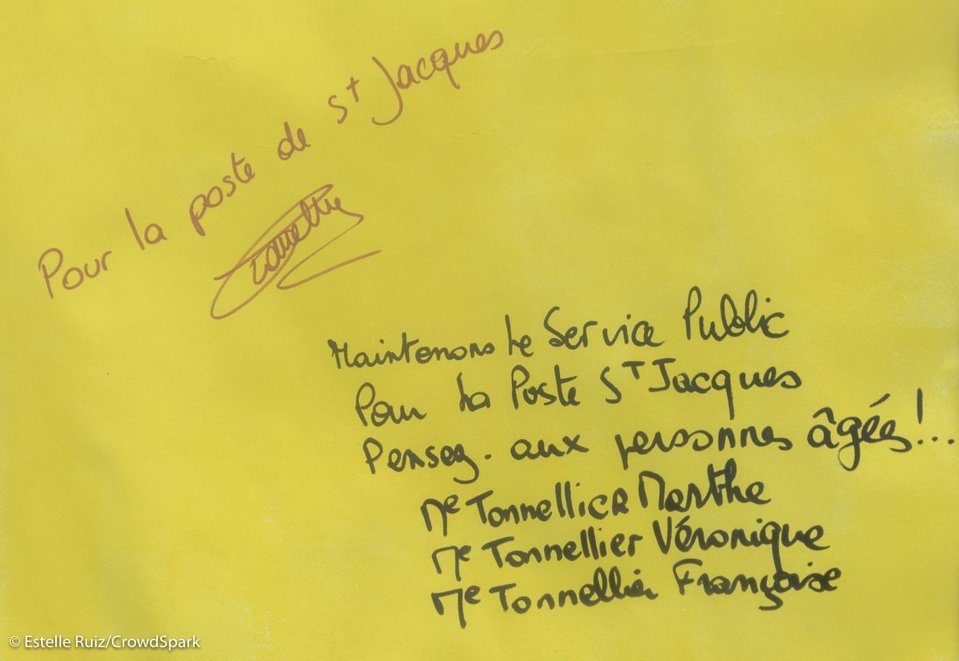 Pour la poste de St Jacques
Maintenons le Service Public
Pour la Poste ST Jacques
Pensez. aux personnes âgées!..
Me Tonnellier Marthe
Me Tonnellier Véronique
Me Tonnellier Françoise
© Estelle Ruiz/CrowdSpark